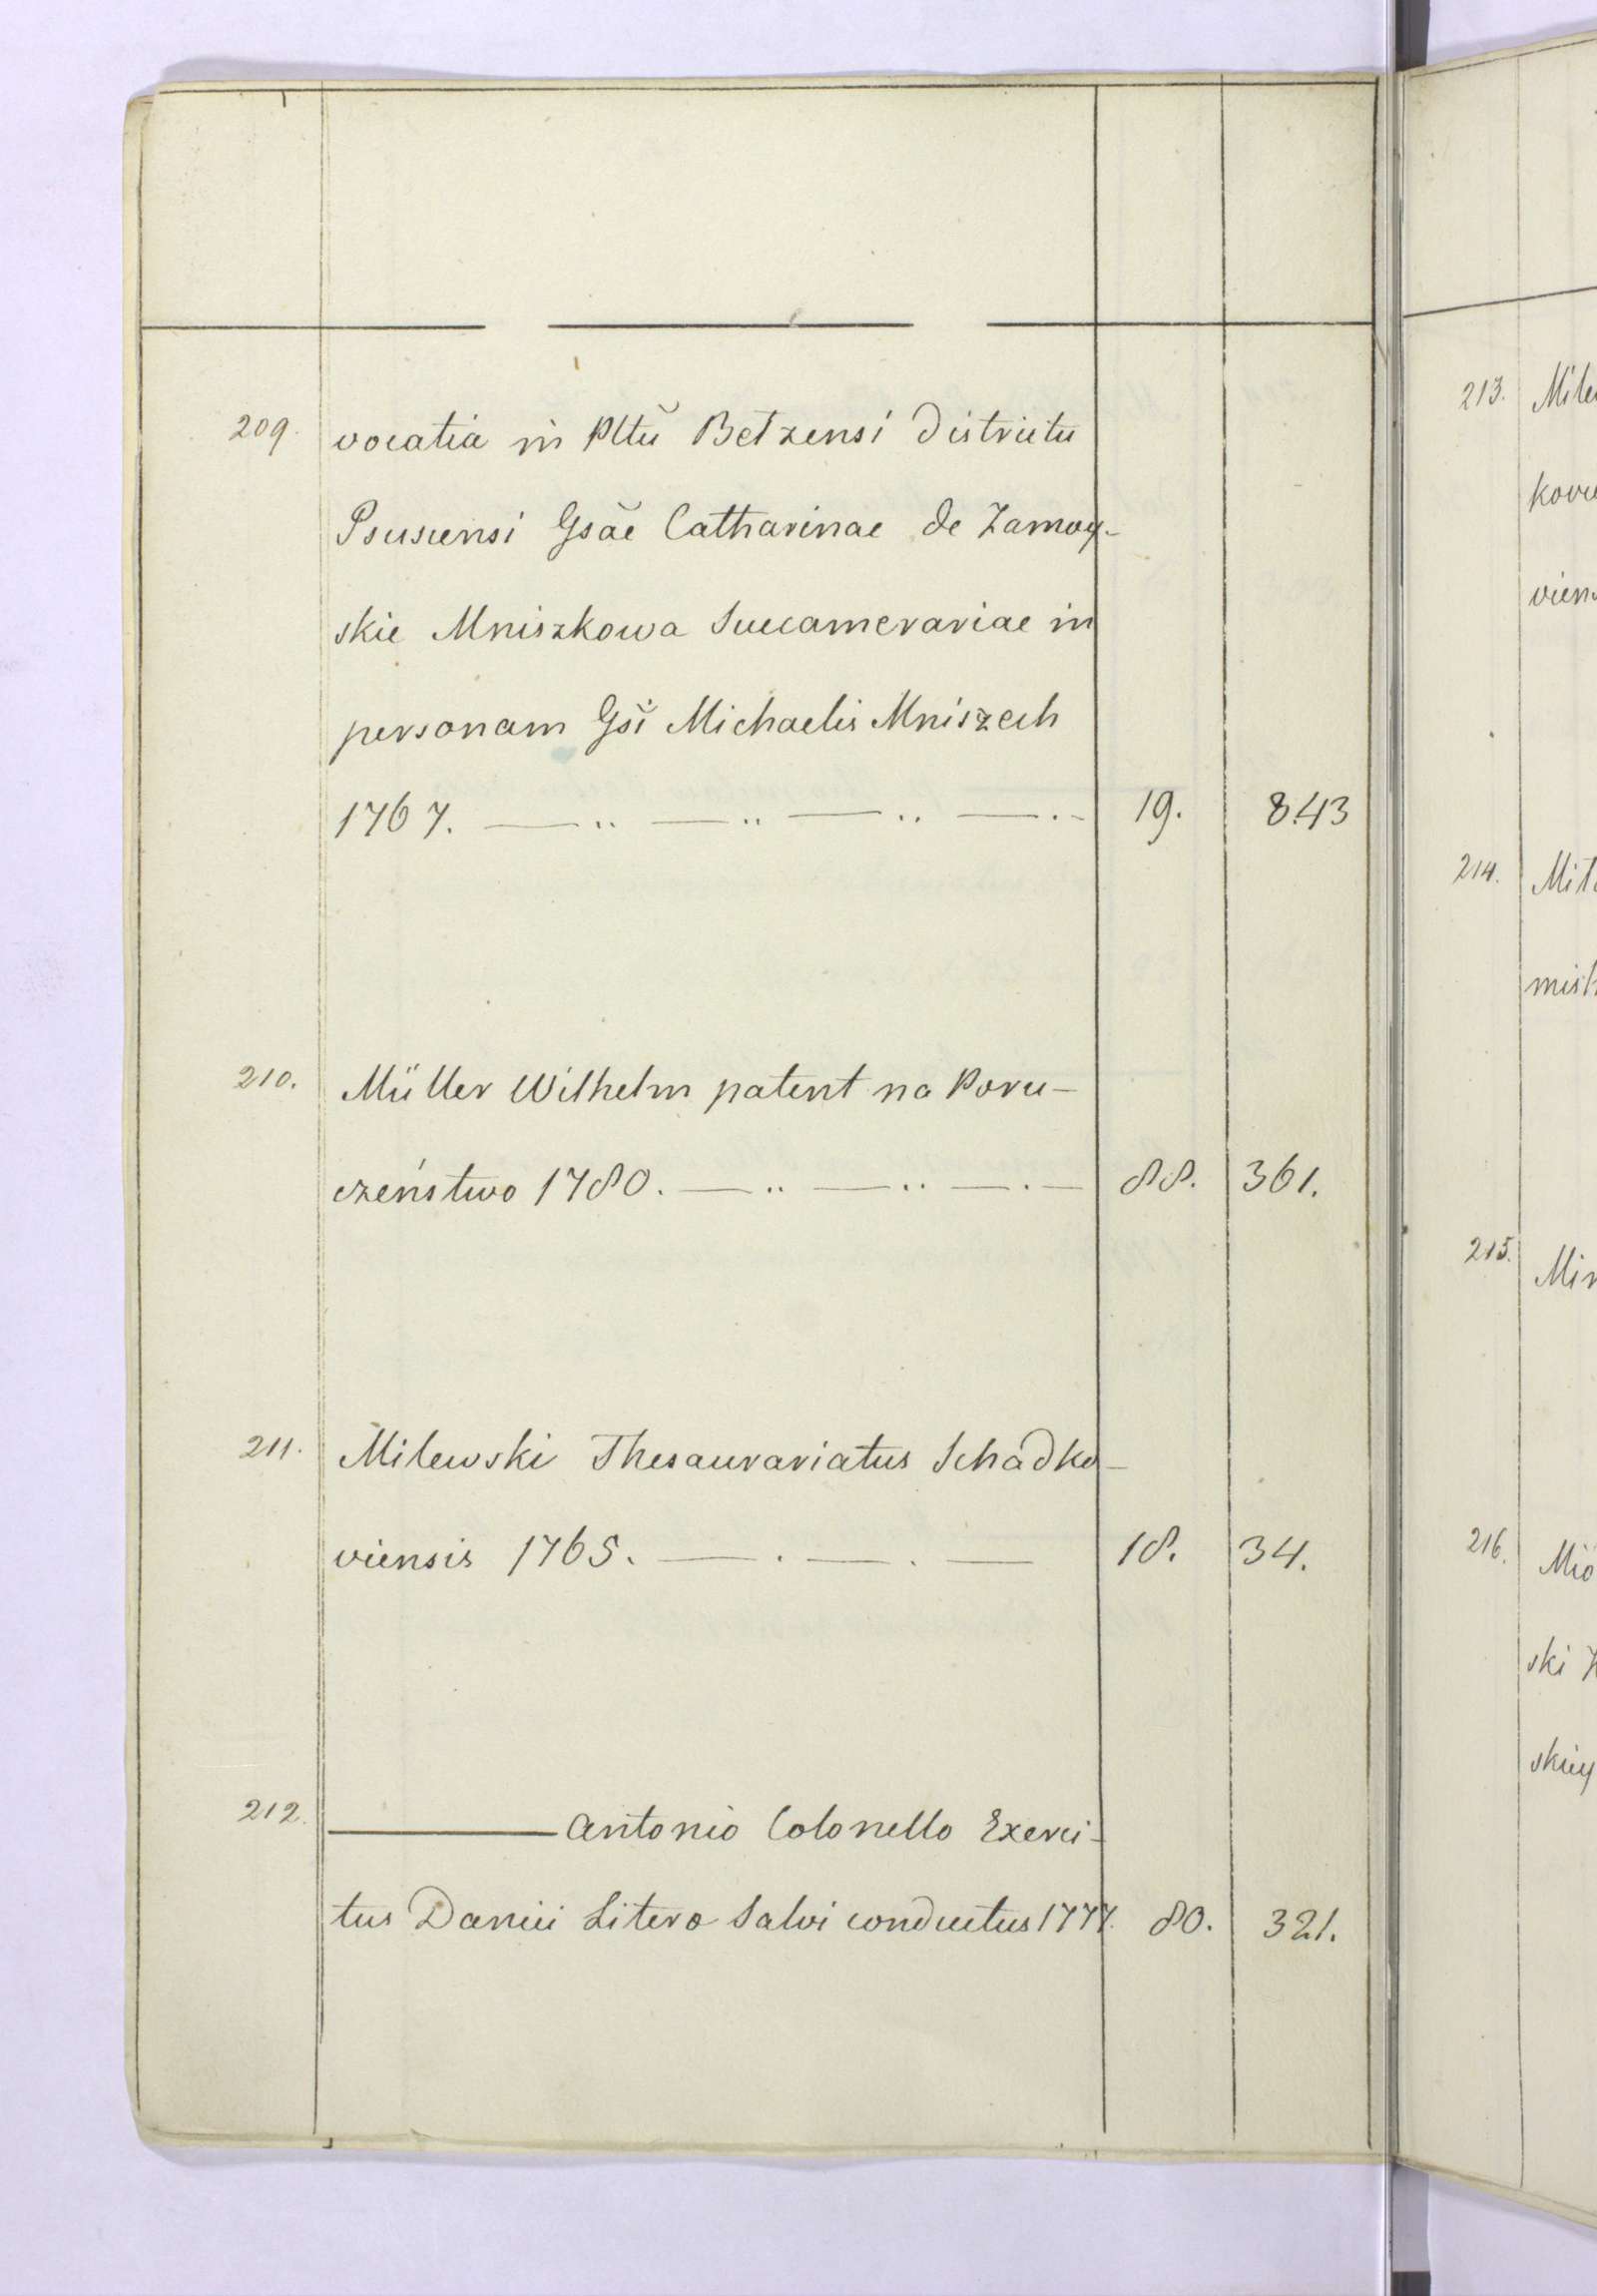 209. vocatia in Pltũ Betzensi Districtu
Psucensi Gsãe Catharinae de Zamoy-
skie Mniszkowa Succamerariae in
personam Gsĩ Michaelis Mniszech
1767. — .. — .. — .. — . - 19. 843
210. Müller Wilhelm patent na Poru-
czeństwo 1780. — .. — .. — . — 88. 361.
211. Milewski Thesaurariatus Schadko-
viensis 1765. — . — . — 18. 34.
212. ——— Antonio Colonello Exerci-
tus Danici Litera Salvi conductus 1777. 80. 321.
213. Mile
kovi
viens
214. Mit
mist
215. Mir
216. Mio
ski
skiey